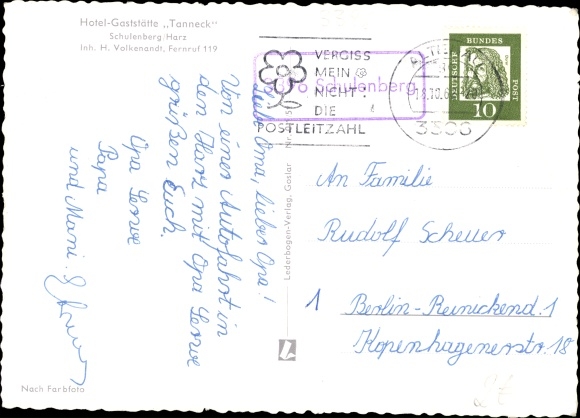 Hotel-Gaststätte „Tanneck"
Schulenberg/Harz
Inh. H. Volkenandt, Fernruf 119
Liebe Oma, lieber Opa!
Von einer Autofahrt in
den Harz mit Opa
grüßen Euch.
Opa
Papa
und Mami.
Nach Farbfoto
Lederbogen-Verlag, Goslar
VERGISS
MEIN
NICHT:
DIE
POSTLEITZAHL
Schulenberg
3380
DEUTSCHE
BUNDES
POST
10
An Familie
Rudolf Scheuer
1 Berlin-Reinickend. 1
Kopenhagenerstr. 18